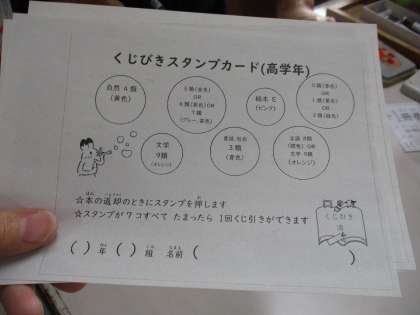 くじびきスタンプカード(高学年)
自然 4類
(黄色)
5類(金色)
OR
6類(茶色)OR
7類
(グレー、茶色)
絵本 E
(ピンク)
0類(赤色)
OR
1類(黒色)
OR
2類(緑色)
文学
9類
(オレンジ)
産業、社会
3類
(青色)
言語 8類
(桃色) OR
文学 9類
(オレンジ)
☆本の返却のときにスタンプを押します
☆スタンプが7コすべて たまったら 1回くじ引きができます
くじびき
( )年( )組 名前( )